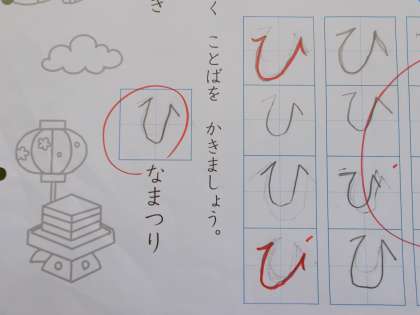 ひひひひ
ひひひひ
く ことばを かきましょう。
ひなまつり